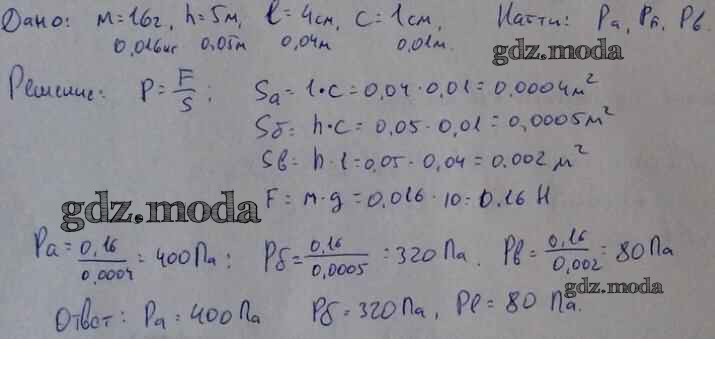 Дано: m=16г, h=5м, l=4см, c=1см, Найти: Pа, Pб, Pв.
0,016кг 0,05м 0,04м 0,01м.
gdz.moda
Решение: P=F/S; Sа=l·c=0,04·0,01=0,0004м²
Sб=h·c=0,05·0,01=0,0005м²
Sв=h·l=0,05·0,04=0.002м²
F=m·g=0,016·10=0.16 Н
gdz.moda
Pа=0,16/0,0004=400Па; Pб=0,16/0,0005=320Па. Pв=0,16/0,002=80Па
gdz.moda
Ответ: Pа=400Па Pб=320Па, Pв=80 Па.